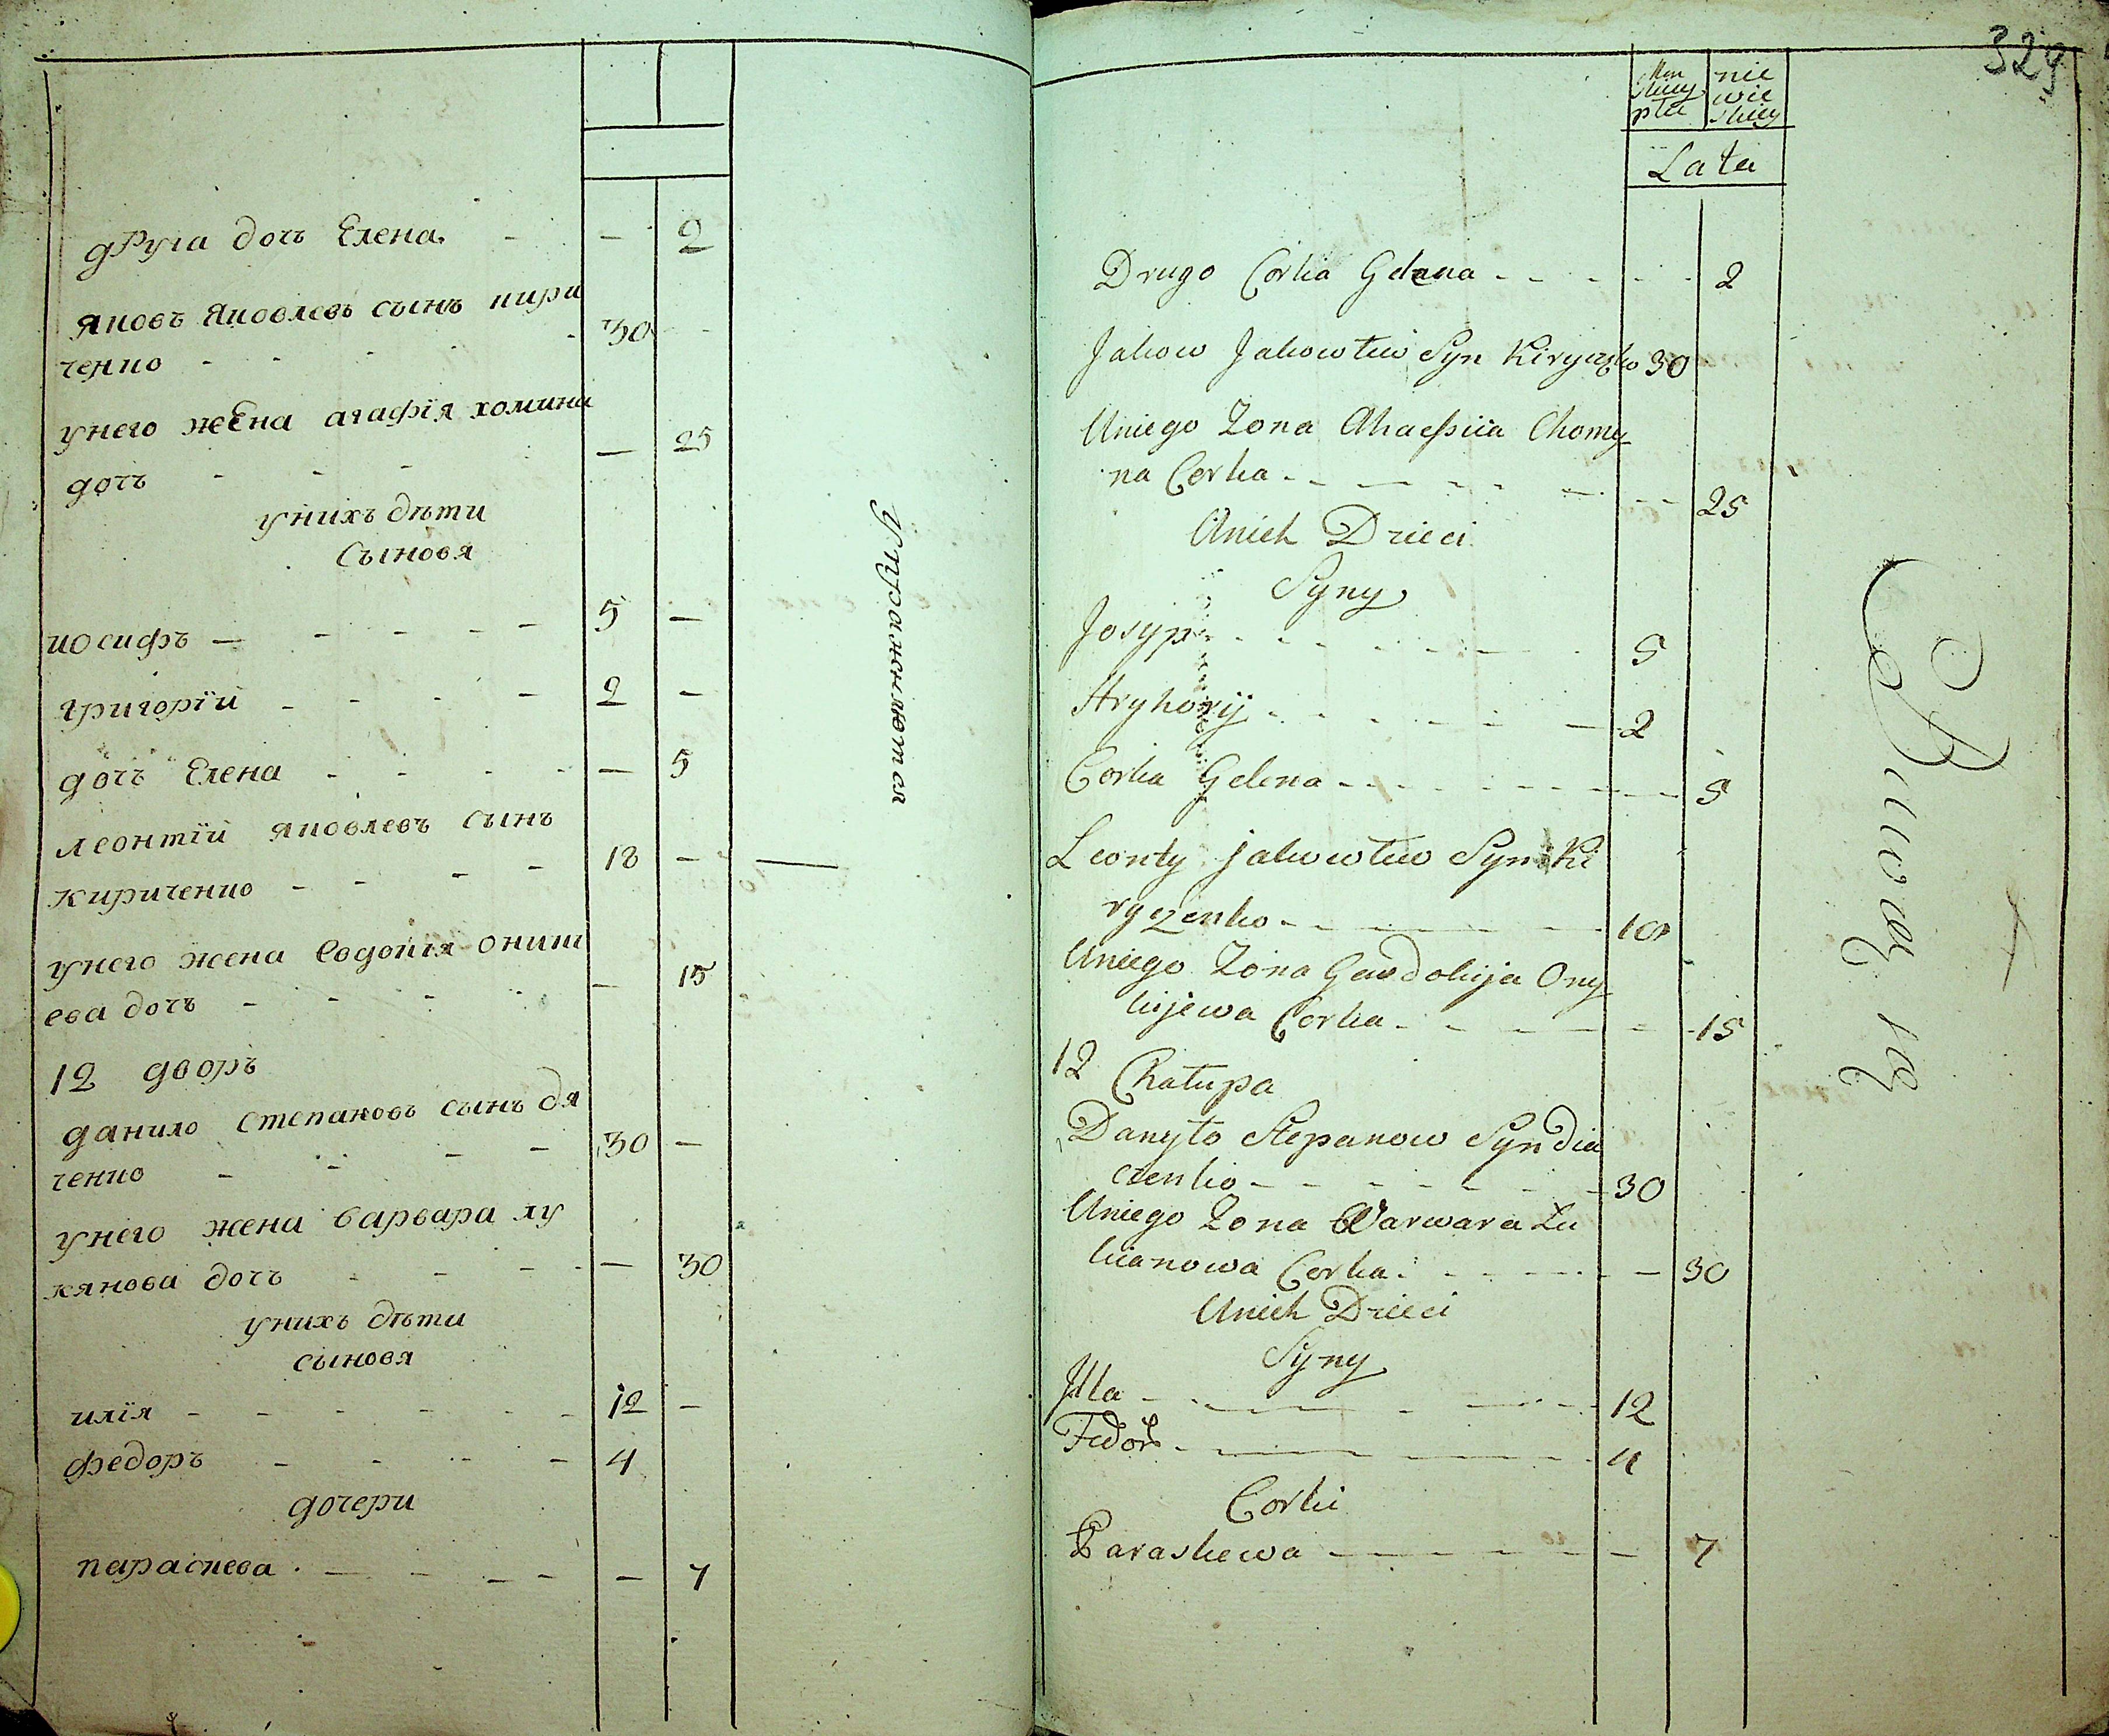 друга дочъ Елена. - - 2
яковъ яковлевъ сынъ кири
ченко - - - - 30 -
унего жена агафїя хомина
дочъ - - - - 25
унихъ дѣти
Сыновя
иосифъ - - - - - 5 -
григорїй - - - - 2 -
дочъ Елена - - - - - 5
леонтїй яковлевъ сынъ
кириченко - - - - 18 -
унего жена Евдокїя ониш
ева дочъ - - - - - 15
12 дворъ
данило степановъ сынъ дя
ченко - - - - 30 -
унего жена варвара лу
кянова дочъ - - - - - 30
унихъ дѣти
сыновя
илїя - - - - - - 12 -
федоръ - - - - 4
дочери
параскева - - - - - 7
Упражняются
329
Men
skiey
płci
nie
wie
skiey
Lata
Drugo Corka Gelena - - - - - 2
Jakow Jakowlew Syn Kiryczko 30
Uniego Zona Ahaefiia Chomy
na Corka - - - - - - 25
Unich Dzieci
Syny
Josyp - - - - - - 5
Hryhoryj - - - - - - 2
Corka Gelena - - - - - - - 5
Leonty jakowlew Syn Ki
ryczenko - - - - - - 18
Uniego Zona Gaudokija Ony
kijewa Corka - - - - - 15
12 Chałupa
Danyło Stepanow Syn dia
czenko - - - - - - - 30
Uniego Zona Warwara Lu
kianowa Corka - - - - - - 30
Unich Dzieci
Syny
Jlla - - - - - - - 12
Fedor - - - - - 4
Corki
Paraskewa - - - - - - - 7
Bawią się